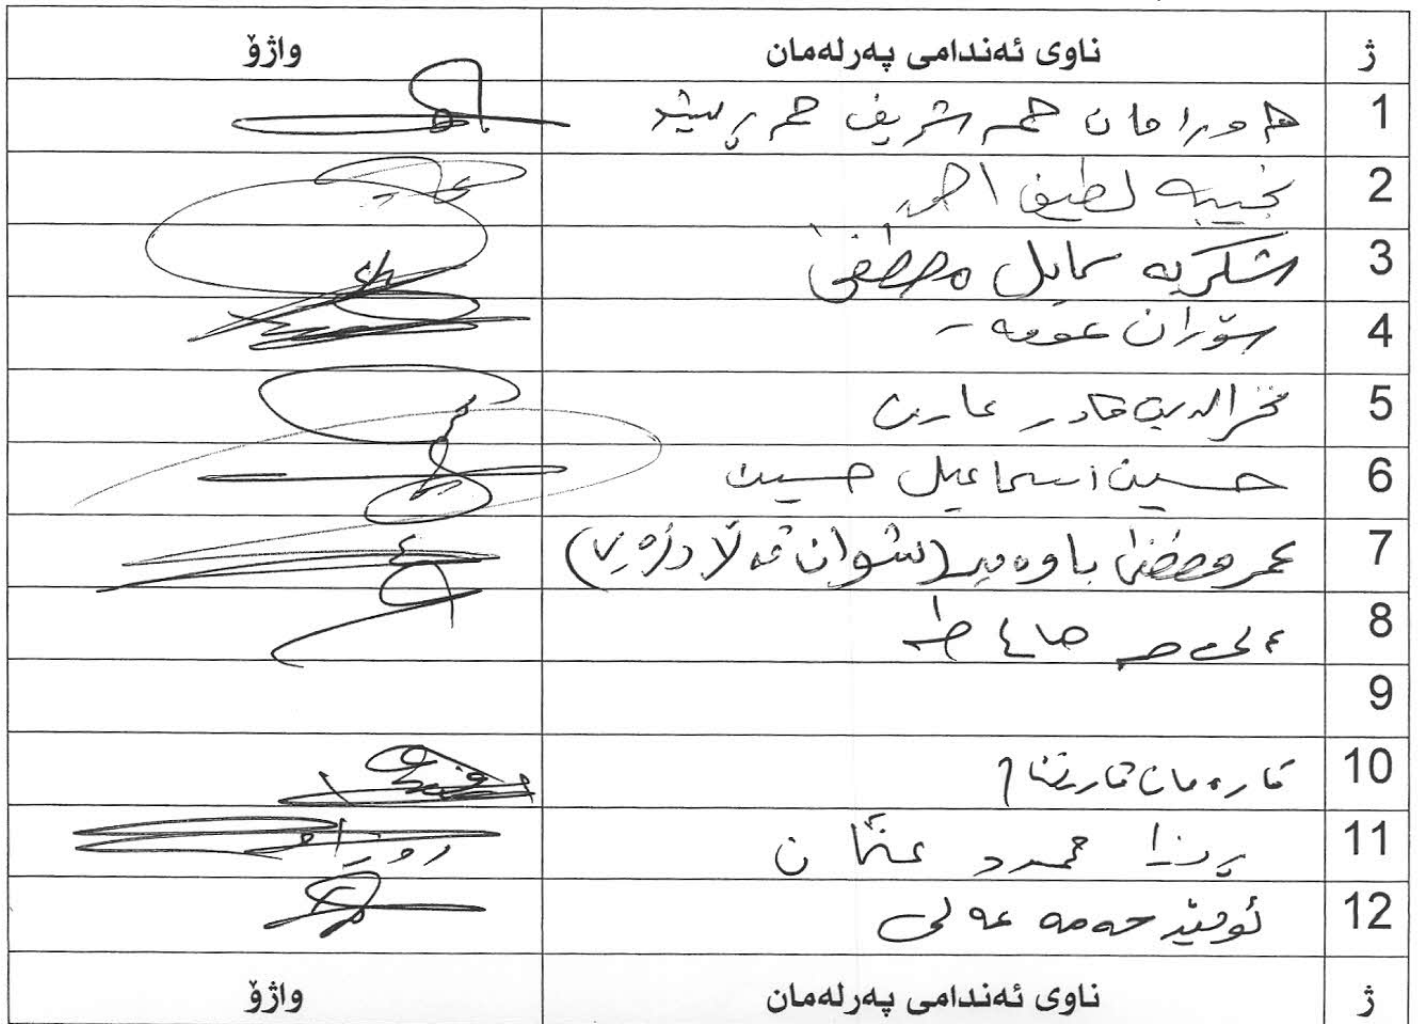 ژ ناوی ئەندامی پەرلەمان واژۆ
1 هەورامان حمە شریف حمە رشید
2 نجیبه لطیف احمد
3 شکریه سمایل مصطفی
4 سۆران عومەر
5 فخرالدین قادر عارف
6 حسین اسماعیل حسین
7 عمر مصطفی باوەمیر (شوان قەڵادزەیی)
8 علی حمە صالح طه
9
10 قارەمان قادر
11 پەروا محمود عثمان
12 ئومێد حەمە عەلی
ژ ناوی ئەندامی پەرلەمان واژۆ